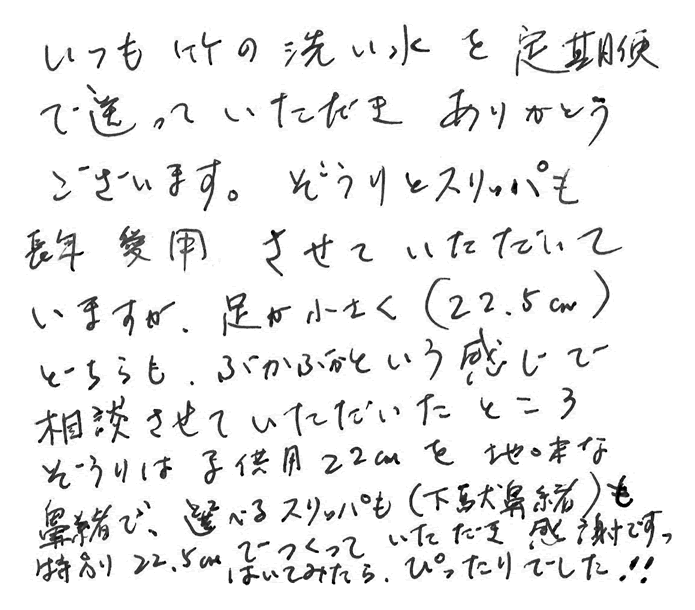 いつも竹の洗い水を定期便
で送っていただき ありがとう
ございます。ぞうりとスリッパも
長年愛用 させていただいて
いますが、足が小さく(22.5cm)
どちらも、ぶかぶかという感じで
相談させていただいたところ
ぞうりは子供用22cmを 地味な
鼻緒で、選べるスリッパも(下駄鼻緒)も
特別22.5cmでつくって いただき感謝ですっ
はいてみたら、ぴったりでした!!